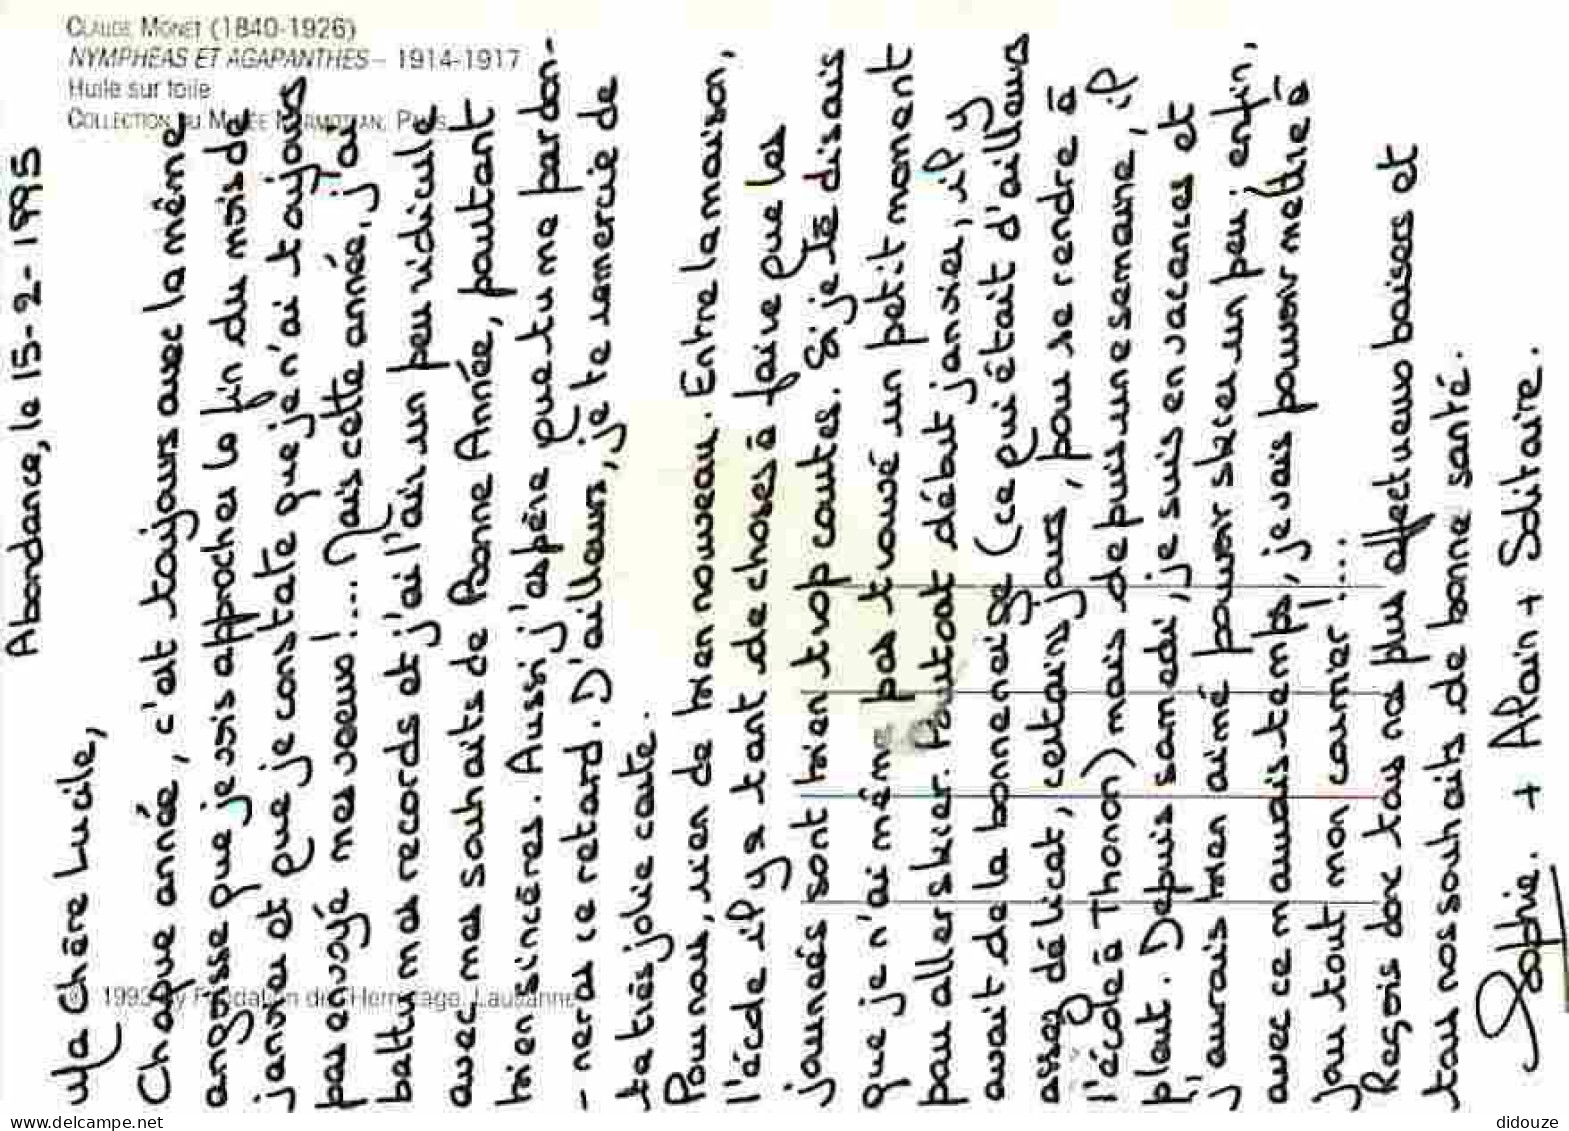 CLAUDE MONET (1840-1926)
NYMPHEAS ET AGAPANTHES – 1914-1917
Huile sur toile
COLLECTION DU MUSÉE MARMOTTAN, PARIS
Abondance, le 15-2-1995
Ma Chère Lucile,
Chaque année, c'est toujours avec la même
angoisse que je vois approcher la fin du mois de
janvier et que je constate que je n'ai toujours
pas envoyé mes voeux !... Mais cette année, j'ai
battu mes records et j'ai l'air un peu ridicule
avec mes souhaits de Bonne Année, pourtant
bien sincères. Aussi j'espère que tu me pardon-
-neras ce retard. D'ailleurs, je te remercie de
ta très jolie carte.
Pour nous, rien de bien nouveau. Entre la maison,
l'école il y a tant de choses à faire que les
journées sont bien trop courtes. Si je te disais
que je n'ai même pas trouvé un petit moment
pour aller skier. Pourtant début janvier, il y
avait de la bonne neige (ce qui était d'ailleurs
assez délicat, certains jours, pour se rendre à
l'école à Thonon) mais depuis une semaine, il
pleut. Depuis samedi, je suis en vacances et
j'aurais bien aimé pouvoir skier un peu ; enfin,
avec ce mauvais temps, je vais pouvoir mettre à
jour tout mon courrier !....
Reçois donc tous nos plus affectueux baisers et
tous nos souhaits de bonne santé.
Sophie. + Alain + Solitaire.
© 1993 by Fondation de l'Hermitage, Lausanne
www.delcampe.net
didouze